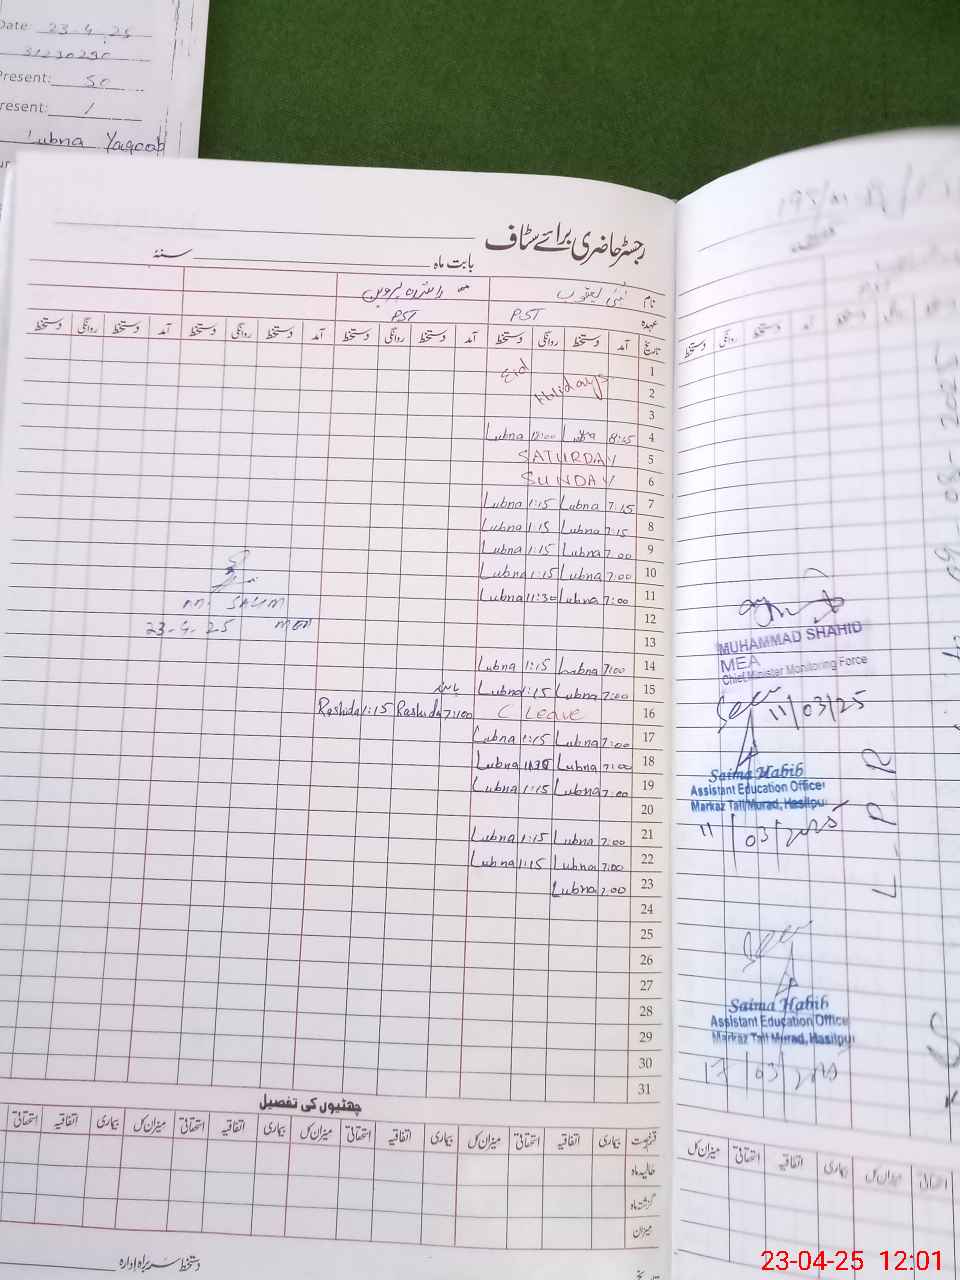 Date: 23-4-25
31230290
Present: 50
resent: 1
Lubna Yaqoob
رجسٹر حاضری برائے سٹاف
بابت ماہ سنۂ
نام لبنیٰ یعقوب مس راشدہ پروین
عہدہ PST PST
تاریخ آمد دستخط روانگی دستخط آمد دستخط روانگی دستخط آمد دستخط روانگی دستخط آمد دستخط روانگی دستخط
1 Eid
2 Holidays
3
4 8:15 Lubna 12:00 Lubna
5 SATURDAY
6 SUNDAY
7 7:15 Lubna 1:15 Lubna
8 7:15 Lubna 1:15 Lubna
9 7:00 Lubna 1:15 Lubna
10 7:00 Lubna 1:15 Lubna
11 7:00 Lubna 11:30 Lubna
12
13
14 7:00 Lubna 1:15 Lubna
15 7:00 Lubna 1:15 Lubna
16 C Leave 7:00 Rashida 1:15 Rashida
17 7:00 Lubna 1:15 Lubna
18 7:00 Lubna Lubna
19 7:00 Lubna 1:15 Lubna
20
21 7:00 Lubna 1:15 Lubna
22 7:00 Lubna 1:15 Lubna
23 7:00 Lubna
24
25
26
27
28
29
30
31
M. SALIM
23-4-25 MEA
چھٹیوں کی تفصیل
بیماری اتفاقیہ استحقاقی میزان کل بیماری اتفاقیہ استحقاقی میزان کل بیماری اتفاقیہ استحقاقی میزان کل بیماری اتفاقیہ استحقاقی
حالیہ ماہ
گزشتہ ماہ
میزان
دستخط سربراہ ادارہ
روانگی دستخط
MUHAMMAD SHAHID
MEA
Chief Minister Monitoring Force
11/03/25
Saima Habib
Assistant Education Officer
Markaz Tail Murad, Hasilpur
11/03/2025
L-P-R
Saima Habib
Assistant Education Office
Markaz Tail Murad, Hasilpur
17/03/2025
میزان کل استحقاقی اتفاقیہ بیماری میزان کل استحقاقی
23-04-25 12:01